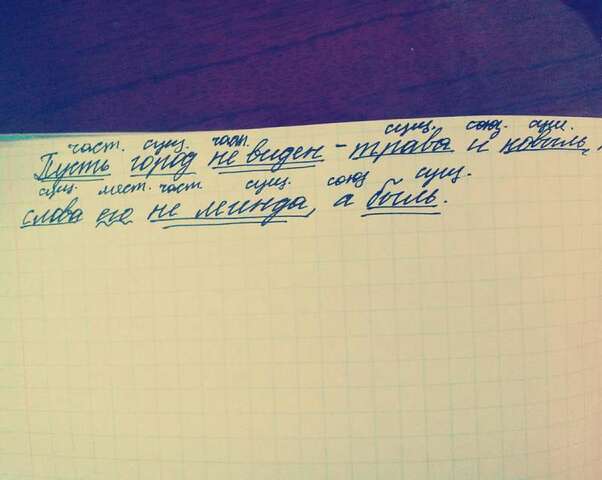 част. сущ. част. сущ. союз. сущ.
Пусть город не виден - трава и ковыль,
сущ. мест. част. сущ. союз сущ.
слова его не легенда, а быль.